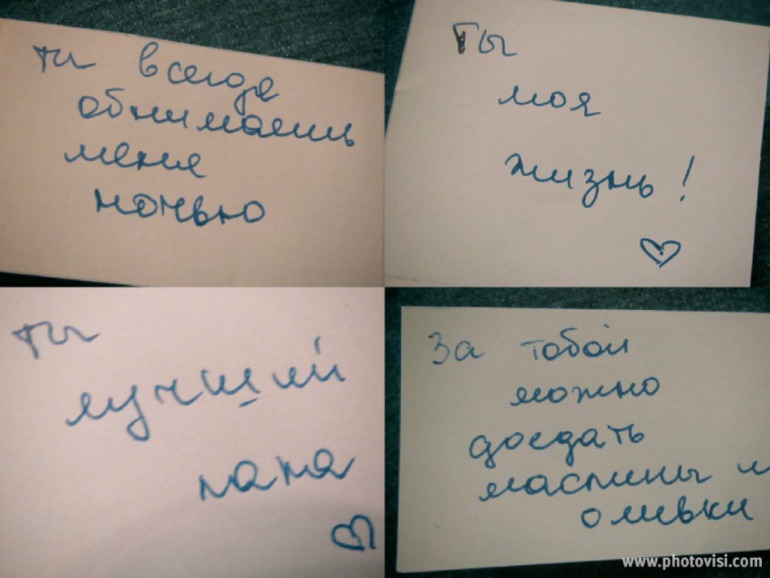 ты всегда
обнимаешь
меня
ночью
Ты
моя
жизнь!
ты
лучший
папа
За тобой
можно
доедать
маслины и
оливки
www.photovisi.com